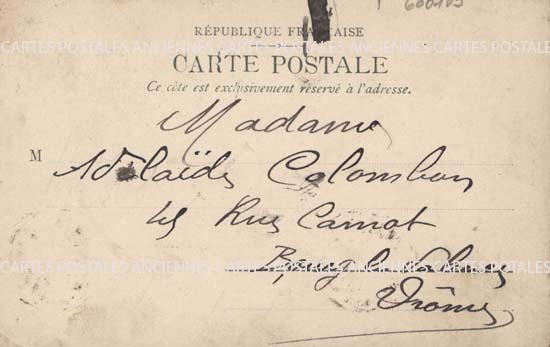 600109
RÉPUBLIQUE FRANÇAISE
CARTES POSTALES ANCIENNES CARTES POSTALES ANCIENNES CARTES POSTALES
CARTE POSTALE
Ce côté est exclusivement réservé à l'adresse.
Madame
M Adelaïde Colomban
Rue Carnot
CARTES POSTALES ANCIENNES CARTES POSTALES ANCIENNES CARTES POSTALES
Bourg le
Drôme